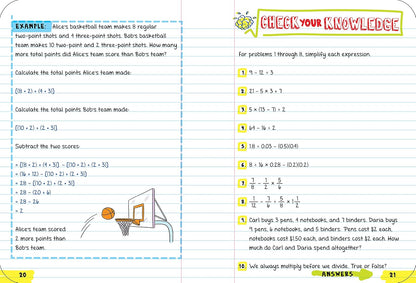 EXAMPLE: Alice's basketball team makes 8 regular
two-point shots and 4 three-point shots. Bob's basketball
team makes 10 two-point and 2 three-point shots. How many
more total points did Alice's team score than Bob's team?
Calculate the total points Alice's team made:
[(8 × 2) + (4 × 3)]
Calculate the total points Bob's team made:
[(10 × 2) + (2 × 3)]
Subtract the two scores:
= [(8 × 2) + (4 × 3)] - [(10 × 2) + (2 × 3)]
= (16 + 12) - [(10 × 2) + (2 × 3)]
= 28 - [(10 × 2) + (2 × 3)]
= 28 - (20 + 6)
= 28 - 26
= 2
Alice's team scored
2 more points than
Bob's team.
20
CHECK YOUR KNOWLEDGE
For problems 1 through 8, simplify each expression.
1. 9 - 12 ÷ 3
2. 21 - 5 × 3 + 7
3. 5 × (13 - 7) ÷ 2
4. 64 - 16 ÷ 2
5. 1.8 ÷ 0.03 - (0.5)(0.4)
6. 8 ÷ 16 × 0.28 - (0.2)(0.2)
7.
8.
9. Carl buys 3 pens, 4 notebooks, and 7 binders. Daria buys
9 pens, 6 notebooks, and 5 binders. Pens cost $2 each,
notebooks cost $1.50 each, and binders cost $2 each. How
much do Carl and Daria spend altogether?
10. We always multiply before we divide. True or False?
ANSWERS
21